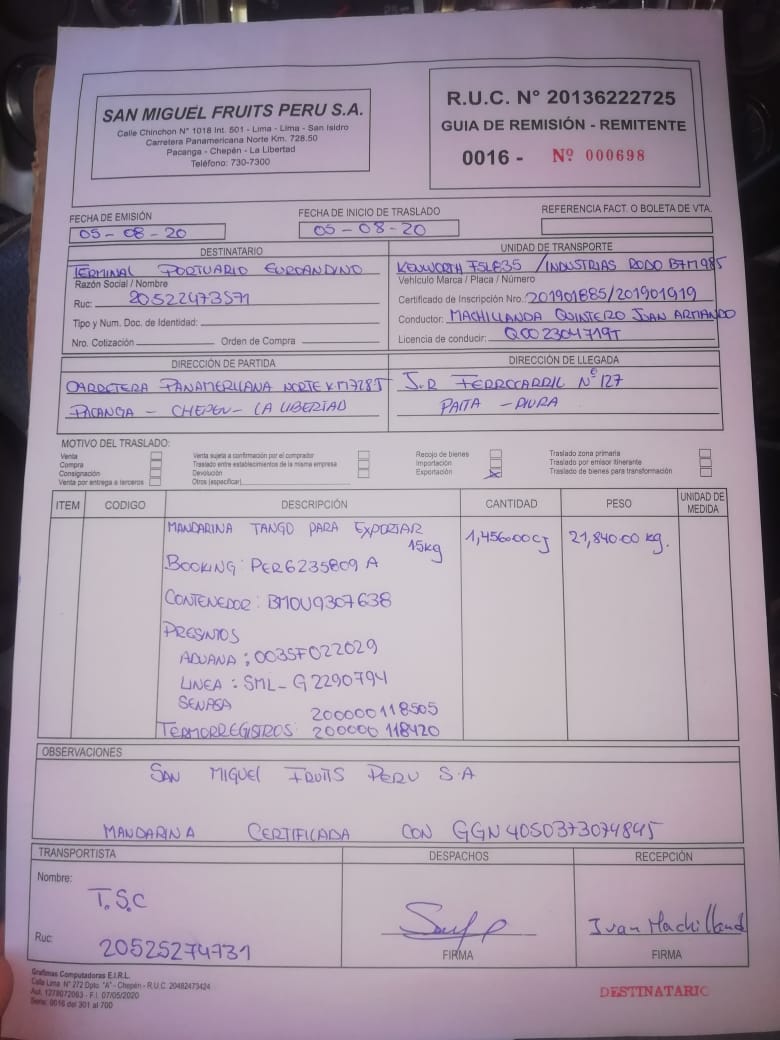 SAN MIGUEL FRUITS PERU S.A.
Calle Chinchon N° 1018 Int. 501 - Lima - Lima - San Isidro
Carretera Panamericana Norte Km. 728.50
Pacanga - Chepén - La Libertad
Teléfono: 730-7300
R.U.C. N° 20136222725
GUIA DE REMISIÓN - REMITENTE
0016 - Nº 000698
FECHA DE EMISIÓN
05-08-20
FECHA DE INICIO DE TRASLADO
05-08-20
REFERENCIA FACT. O BOLETA DE VTA.
DESTINATARIO
TERMINAL PORTUARIO EUROANDINO
Razón Social / Nombre
Ruc: 20522473571
Tipo y Num. Doc. de Identidad:
Nro. Cotización Orden de Compra
UNIDAD DE TRANSPORTE
KENWORTH / INDUSTRIAS RODO B7M985
Vehículo Marca / Placa / Número
Certificado de Inscripción Nro. 201901885/201901919
Conductor: MACHILLANDA QUINTERO JUAN ARMANDO
Licencia de conducir:
DIRECCIÓN DE PARTIDA
CARRETERA PANAMERICANA NORTE KM
PACANGA - CHEPEN - LA LIBERTAD
DIRECCIÓN DE LLEGADA
J.R FERROCARRIL Nº 127
PAITA - PIURA
MOTIVO DEL TRASLADO:
Venta
Compra
Consignación
Venta por entrega a terceros
Venta sujeta a confirmación por el comprador
Traslado entre establecimientos de la misma empresa
Devolución
Otros (especificar)
Recojo de bienes
Importación
Exportación X
Traslado zona primaria
Traslado por emisor itinerante
Traslado de bienes para transformación
ITEM CODIGO DESCRIPCIÓN CANTIDAD PESO UNIDAD DE MEDIDA
MANDARINA TANGO PARA EXPORTAR 1,456.00 CJ 21,840.00 kg.
15kg
BOOKING: PER6235809 A
CONTENEDOR: BMOU9307638
PRESINTOS
ADUANA: 003SF022029
LINEA: SML-G2290794
SENASA
200000118505
TERMORREGISTROS: 200000118420
OBSERVACIONES
SAN MIGUEL FRUITS PERU S.A
MANDARINA CERTIFICADA CON GGN 4050373074845
TRANSPORTISTA
Nombre:
T.S.C
Ruc: 20525274731
DESPACHOS
FIRMA
RECEPCIÓN
FIRMA
Grafimas Computadoras E.I.R.L.
Calle Lima N° 272 Dpto. "A" - Chepén - R.U.C. 20482473424
Aut. 1278072063 - F.I. 07/05/2020
Serie: 0016 del 301 al 700
DESTINATARIO